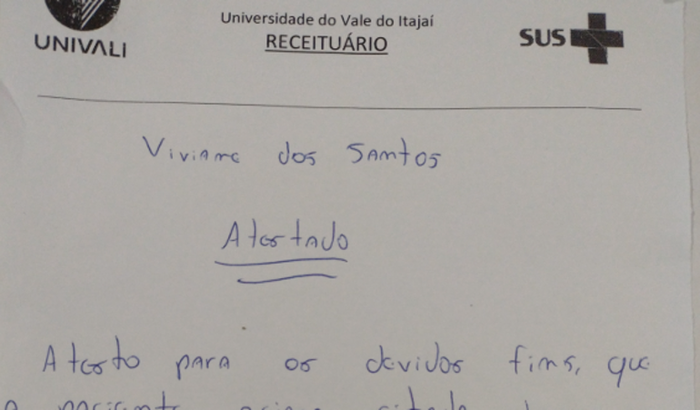 Universidade do Vale do Itajaí
UNIVALI
RECEITUÁRIO
SUS
Viviane dos Santos
Atestado
Atesto para os devidos fins, que
o paciente acima citado